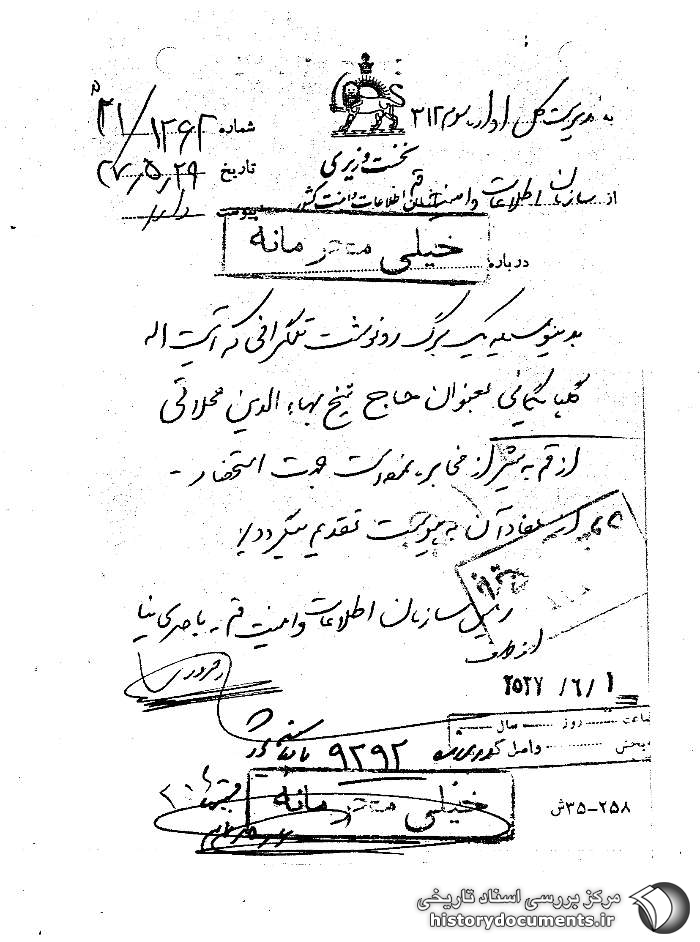 به مدیریت کل اداره سوم ۳۱۲
شماره ۲۱/۱۲۶۲
نخست وزیری
تاریخ ۲۷/۵/۲۹
از سازمان اطلاعات و امنیت قم
سازمان اطلاعات و امنیت کشور
پیوست دارد
درباره
خیلی محرمانه
بدینوسیله یک برگ رونوشت تلگرافی که آیت اله
گلپایگانی بعنوان حاج شیخ بهاء الدین محلاتی
از قم به شیراز مخابره نموده است جهت استحضار
از مفاد آن به پیوست تقدیم میگردد
رئیس سازمان اطلاعات و امنیت قم
از طرف
۲۵۳۷/۶/۱
ساعت روز سال
۹۲۹۲
بخش واصل گردید
خیلی محرمانه
۲۵۸-۳۵ش
مرکز بررسی اسناد تاریخی
historydocuments.ir